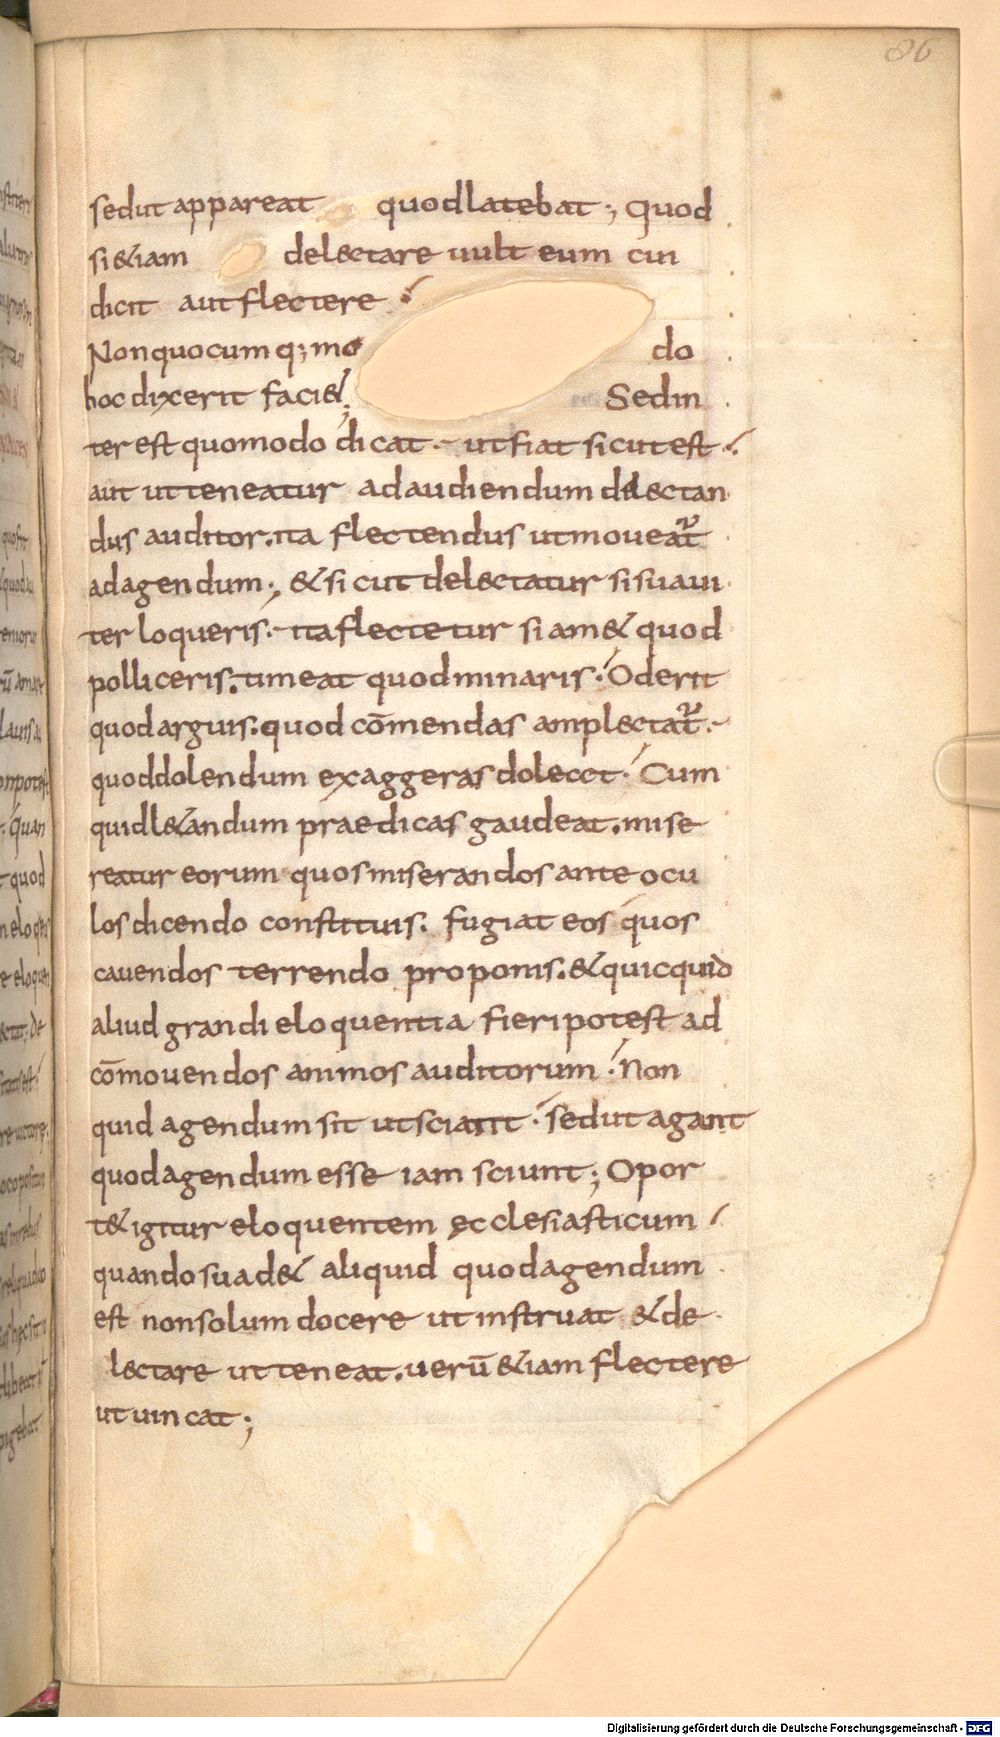 86
sed ut appareat quod latebat; Quod
si &iam delectare uult eum cui
dicit aut flectere
Non quocumq; mo do
hoc dixerit faci&; Sed in
ter est quomodo dicat. ut fiat sicut est.
aut ut teneatur ad audiendum delectan
dus auditor. ita flectendus ut moueat᷑
ad agendum; & sicut delectatur si suaui
ter loqueris. ita flectetur si am& quod
polliceris. timeat quod minaris. Oderit
quod arguis. quod cōmendas amplectat᷑.
quod dolendum exaggeras doleat. Cum
quid l&andum praedicas gaudeat. mise
reatur eorum quos miserandos ante ocu
los dicendo constituis. fugiat eos quos
cauendos terrendo proponis. & quicquid
aliud grandi eloquentia fieri potest ad
cōmouendos animos auditorum. Non
quid agendum sit ut sciant. sed ut agant
quod agendum esse iam sciunt; Opor
t& igitur eloquentem ecclesiasticum
quando suad& aliquid quod agendum
est non solum docere ut instruat & de
lectare ut teneat. uerū &iam flectere
ut uincat;
Digitalisierung gefördert durch die Deutsche Forschungsgemeinschaft - DFG